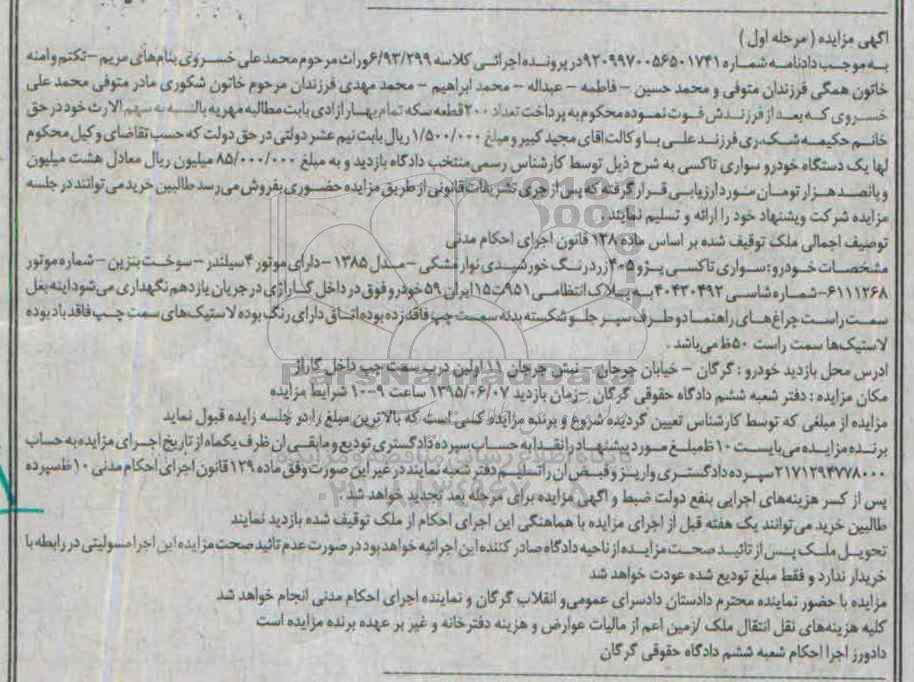 آگهی مزایده (مرحله اول)
به موجب دادنامه شماره ۹۲۰۹۹۷۰۰۵۶۵۰۱۷۴۱ در پرونده اجرائی کلاسه ۶/۹۳/۲۹۹ وراث مرحوم محمد علی خسروی بنام های مریم - تکتم و امنه
خاتون همگی فرزندان متوفی و محمد حسین - فاطمه - عبداله - محمد ابراهیم - محمد مهدی فرزندان مرحوم خاتون شکوری مادر متوفی محمد علی
خسروی که بعد از فرزندش فوت نموده محکوم به پرداخت تعداد ۲۰۰ قطعه سکه تمام بهار ازادی بابت مطالبه مهریه بالنسبه به سهم الارث خود در حق
خانم حکیمه شکری فرزند علی با وکالت اقای مجید کبیر و مبلغ ۱/۵۰۰/۰۰۰ ریال بابت نیم عشر دولتی در حق دولت که حسب تقاضای وکیل محکوم
لها یک دستگاه خودرو سواری تاکسی به شرح ذیل توسط کارشناس رسمی منتخب دادگاه بازدید و به مبلغ ۸۵/۰۰۰/۰۰۰ میلیون ریال معادل هشت میلیون
و پانصد هزار تومان مورد ارزیابی قرار گرفته که پس از جری تشریفات قانونی از طریق مزایده حضوری بفروش می رسد طالبین خرید می توانند در جلسه
مزایده شرکت و پیشنهاد خود را ارائه و تسلیم نمایند
توصیف اجمالی ملک توقیف شده بر اساس ماده ۱۳۸ قانون اجرای احکام مدنی
مشخصات خودرو: سواری تاکسی پژو ۴۰۵ زرد رنگ خورشیدی نوار مشکی - مدل ۱۳۸۵ - دارای موتور ۴ سیلندر - سوخت بنزین - شماره موتور
۶۱۱۱۲۶۸ - شماره شاسی ۴۰۴۲۰۴۹۲ به پلاک انتظامی ۹۵۱ت۱۵ ایران ۵۹ خودرو فوق در داخل گاراژی در جریان یازدهم نگهداری می شود اینه بغل
سمت راست چراغ های راهنما دو طرف سپر جلو شکسته بدنه سمت چپ فاقد زده بوده اتاق دارای رنگ بوده لاستیک های سمت چپ فاقد باد بوده
لاستیک ها سمت راست ۵۰ظ می باشد.
ادرس محل بازدید خودرو: گرگان - خیابان جرجان - نبش جرجان ۱۱ اولین درب سمت چپ داخل گاراژ
مکان مزایده: دفتر شعبه ششم دادگاه حقوقی گرگان - زمان بازدید ۱۳۹۵/۰۶/۰۷ ساعت ۹-۱۰ شرایط مزایده
مزایده از مبلغی که توسط کارشناس تعیین گردیده شروع و برنده مزایده کسی است که بالاترین مبلغ را در جلسه زایده قبول نماید
برنده مزایده می بایست ۱۰ظ مبلغ مورد پیشنهاد را نقدا به حساب سپرده دادگستری تودیع و مابقی ان ظرف یکماه از تاریخ اجرای مزایده به حساب
۲۱۷۱۲۹۴۷۷۸۰۰۰ سپرده دادگستری واریز و قبض ان را تسلیم دفتر شعبه نمایند در غیر این صورت وفق ماده ۱۲۹ قانون اجرای احکام مدنی ۱۰ظ سپرده
پس از کسر هزینه های اجرایی بنفع دولت ضبط و اگهی مزایده برای مرحله بعد تجدید خواهد شد.
طالبین خرید می توانند یک هفته قبل از اجرای مزایده با هماهنگی این اجرای احکام از ملک توقیف شده بازدید نمایند
تحویل ملک پس از تائید صحت مزایده از ناحیه دادگاه صادر کننده این اجرائیه خواهد بود در صورت عدم تائید صحت مزایده این اجرا مسولیتی در رابطه با
خریدار ندارد و فقط مبلغ تودیع شده عودت خواهد شد
مزایده با حضور نماینده محترم دادستان دادسرای عمومی و انقلاب گرگان و نماینده اجرای احکام مدنی انجام خواهد شد
کلیه هزینه های نقل انتقال ملک /زمین اعم از مالیات عوارض و هزینه دفترخانه و غیر بر عهده برنده مزایده است
دادورز اجرا احکام شعبه ششم دادگاه حقوقی گرگان
ParsNamadData